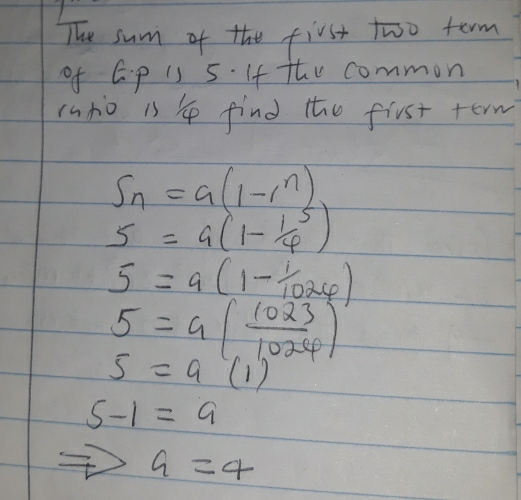 The sum of the first two term
of G.p is 5. If the common
ratio is 1/4 find the first term
Sn = a(1-r^n)
5 = a(1-1/4^5)
5 = a(1-1/1024)
5 = a(1023/1024)
5 = a (1)
5-1 = a
⇒ a = 4